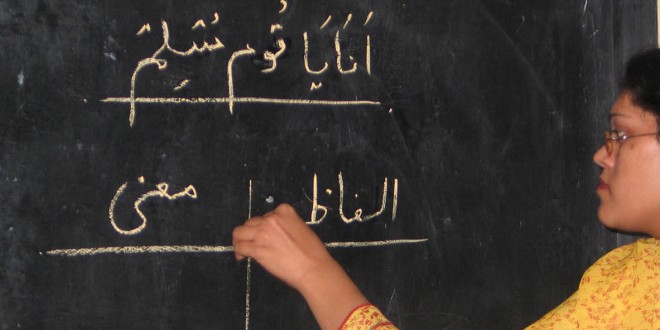 اَنَایَا قُوم مُسلِم
الفاظ معنی